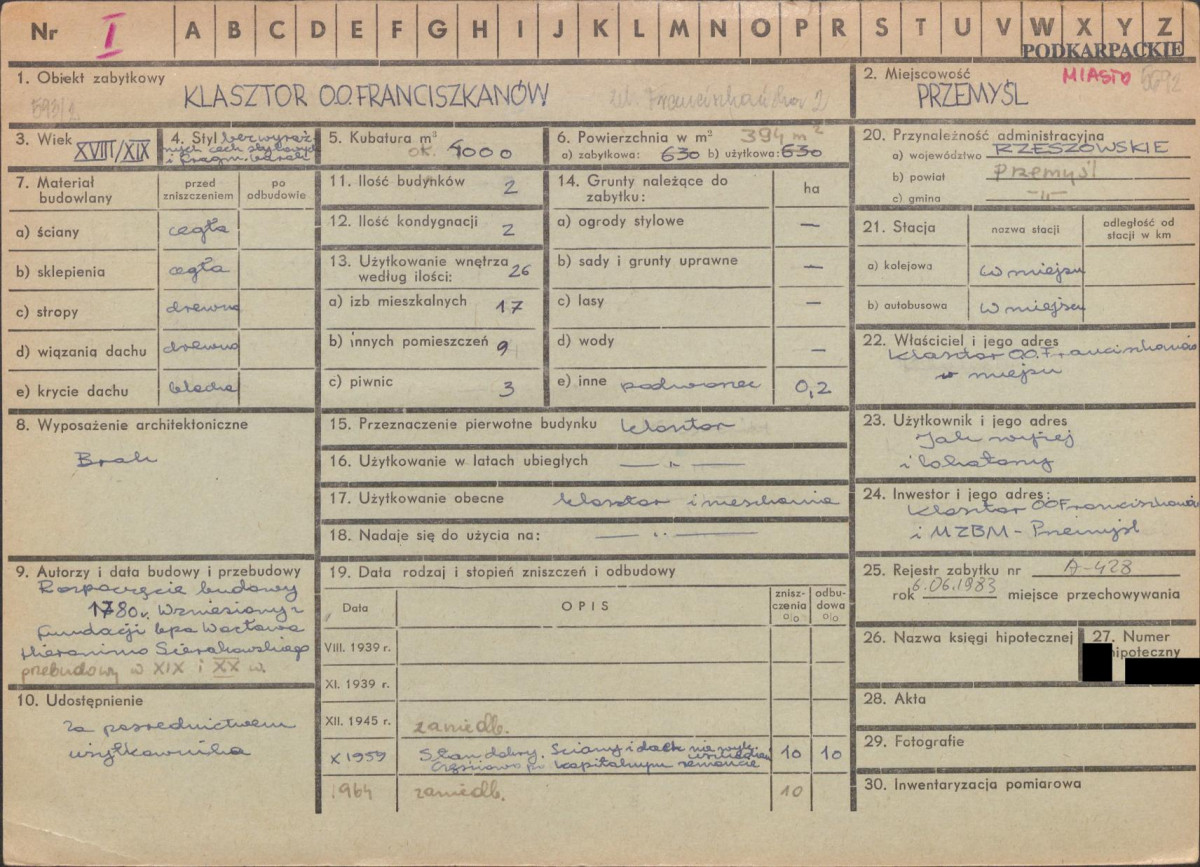 Nr I A B C D E F G H I J K L M N O P R S T U V W X Y Z
PODKARPACKIE
1. Obiekt zabytkowy
KLASZTOR O.O. FRANCISZKANÓW
ul. Franciszkańska 2
2. Miejscowość
MIASTO
PRZEMYŚL
3. Wiek
XVIII/XIX
4. Styl bez wyraź
nych cech stylowych
5. Kubatura m³
ok. 4000
6. Powierzchnia w m² 394 m²
a) zabytkowa: 630 b) użytkowa: 630
20. Przynależność administracyjna
a) województwo RZESZOWSKIE
b) powiat Przemyśl
c) gmina —„—
7. Materiał budowlany
przed zniszczeniem
po odbudowie
a) ściany cegła
b) sklepienia cegła
c) stropy drewno
d) wiązania dachu drewno
e) krycie dachu blacha
11. Ilość budynków 2
12. Ilość kondygnacji 2
13. Użytkowanie wnętrza
według ilości: 26
a) izb mieszkalnych 17
b) innych pomieszczeń 9
c) piwnic 3
14. Grunty należące do
zabytku:
ha
a) ogrody stylowe —
b) sady i grunty uprawne —
c) lasy —
d) wody —
e) inne podworzec 0,2
21. Stacja
nazwa stacji
odległość od
stacji w km
a) kolejowa w miejscu
b) autobusowa w miejscu
22. Właściciel i jego adres
Klasztor OO. Franciszkanów
w miejscu
8. Wyposażenie architektoniczne
Brak
15. Przeznaczenie pierwotne budynku klasztor
16. Użytkowanie w latach ubiegłych —„—
17. Użytkowanie obecne klasztor i mieszkania
18. Nadaje się do użycia na: —„—
23. Użytkownik i jego adres
Jak wyżej
i lokatorzy
24. Inwestor i jego adres:
Klasztor OO Franciszkanów
i MZBM - Przemyśl
9. Autorzy i data budowy i przebudowy
Rozpoczęcie budowy
1780 r. Wzniesiony z
Fundacji bpa Wacława
Hieronima Sierakowskiego
przebudowy w XIX i XX w.
10. Udostępnienie
za pośrednictwem
użytkownika
19. Data rodzaj i stopień zniszczeń i odbudowy
Data
OPIS
znisz-
czenia
%
odbu-
dowa
%
VIII. 1939 r.
XI. 1939 r.
XII. 1945 r. zaniedb.
X 1959 Stan dobry. Ściany i dach
Częściowo po kapitalnym remoncie 10 10
1964 zaniedb. 10
25. Rejestr zabytku nr A-428
rok 6.06.1983 miejsce przechowywania
26. Nazwa księgi hipotecznej
27. Numer
hipoteczny
28. Akta
29. Fotografie
30. Inwentaryzacja pomiarowa